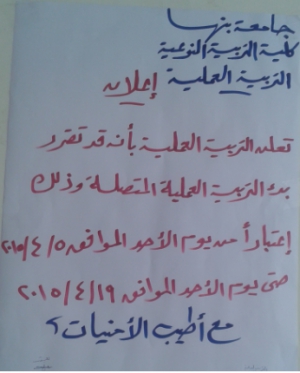 جامعة بنها
كلية التربية النوعية
التربية العملية إعلان
تعلن التربية العملية بأنه قد تقرر
بدء التربية العملية المتصلة وذلك
إعتباراً من يوم الأحد الموافق ٢٠١٥/٤/٥
حتى يوم الأحد الموافق ٢٠١٥/٤/١٩
مع أطيب الأمنيات